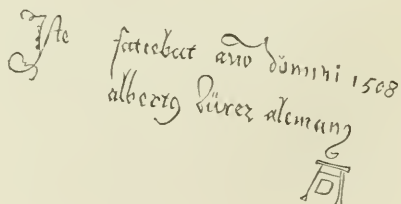 Iste faciebat año domini 1508
albertꝰ dürer alemanꝰ
AD